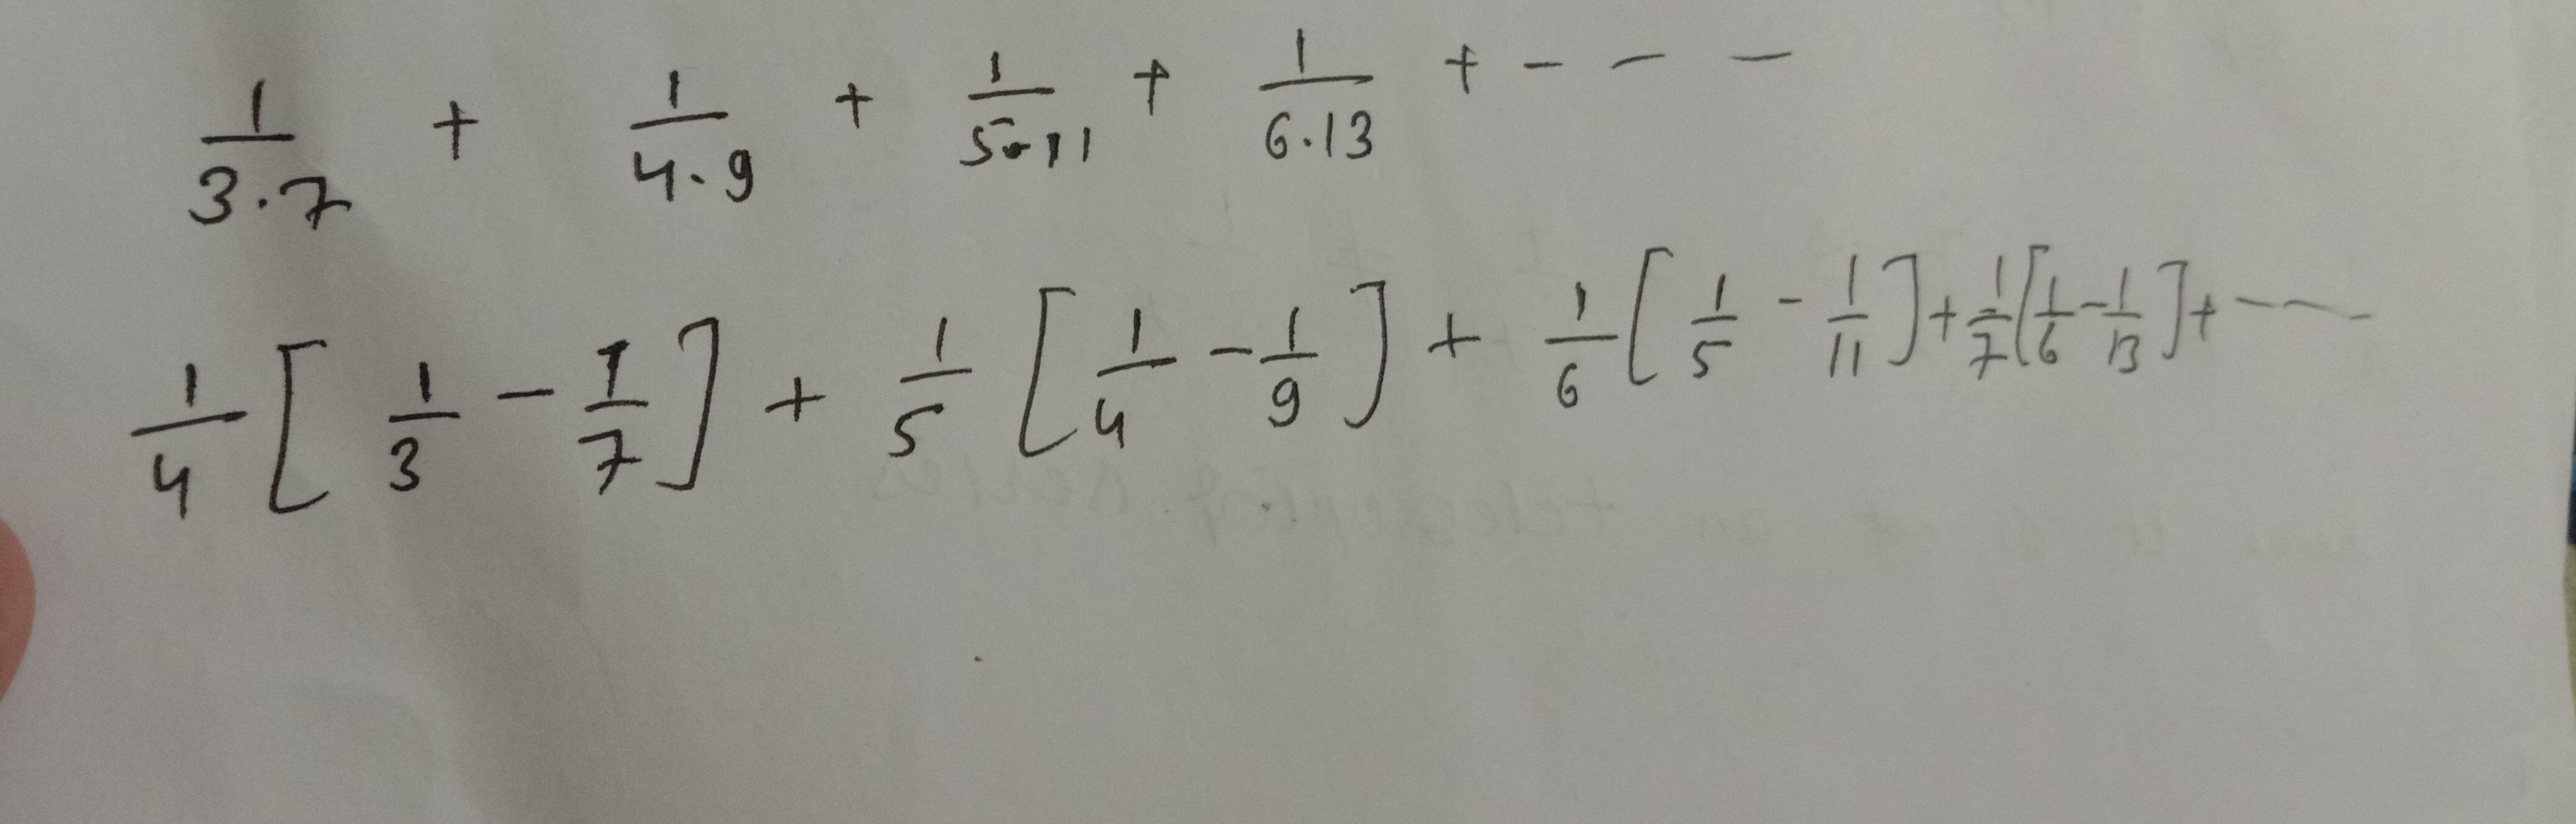 1/3.7 + 1/4.9 + 1/5.11 + 1/6.13 + - - -
1/4 [ 1/3 - 1/7 ] + 1/5 [ 1/4 - 1/9 ] + 1/6 [ 1/5 - 1/11 ] + 1/7 [ 1/6 - 1/13 ] + - - -